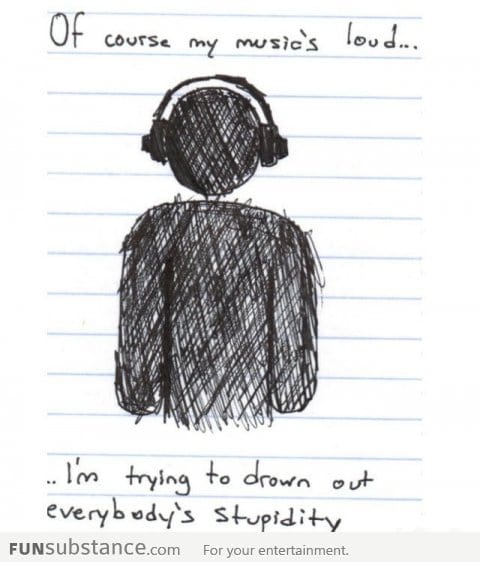 Of course my music's loud...
.. I'm trying to drown out
everybody's stupidity
FUNsubstance.com For your entertainment.